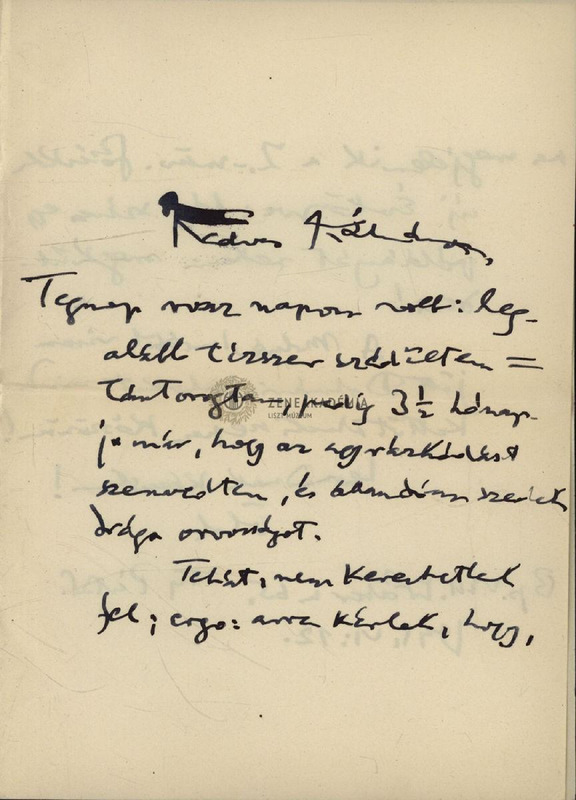 Kedves Kálmán,
Tegnap rossz napom volt: leg-
alább tízszer szédültem =
tántorogtam, pedig 3 1/2 hónap-
ja már, hogy az agyrázkódást
szenvedtem, és állandóan szedek
drága orvosságot.
Tehát, nem kereshetlek
fel; ergo: arra kérlek, hogy,
ZENEAKADÉMIA
LISZT MÚZEUM